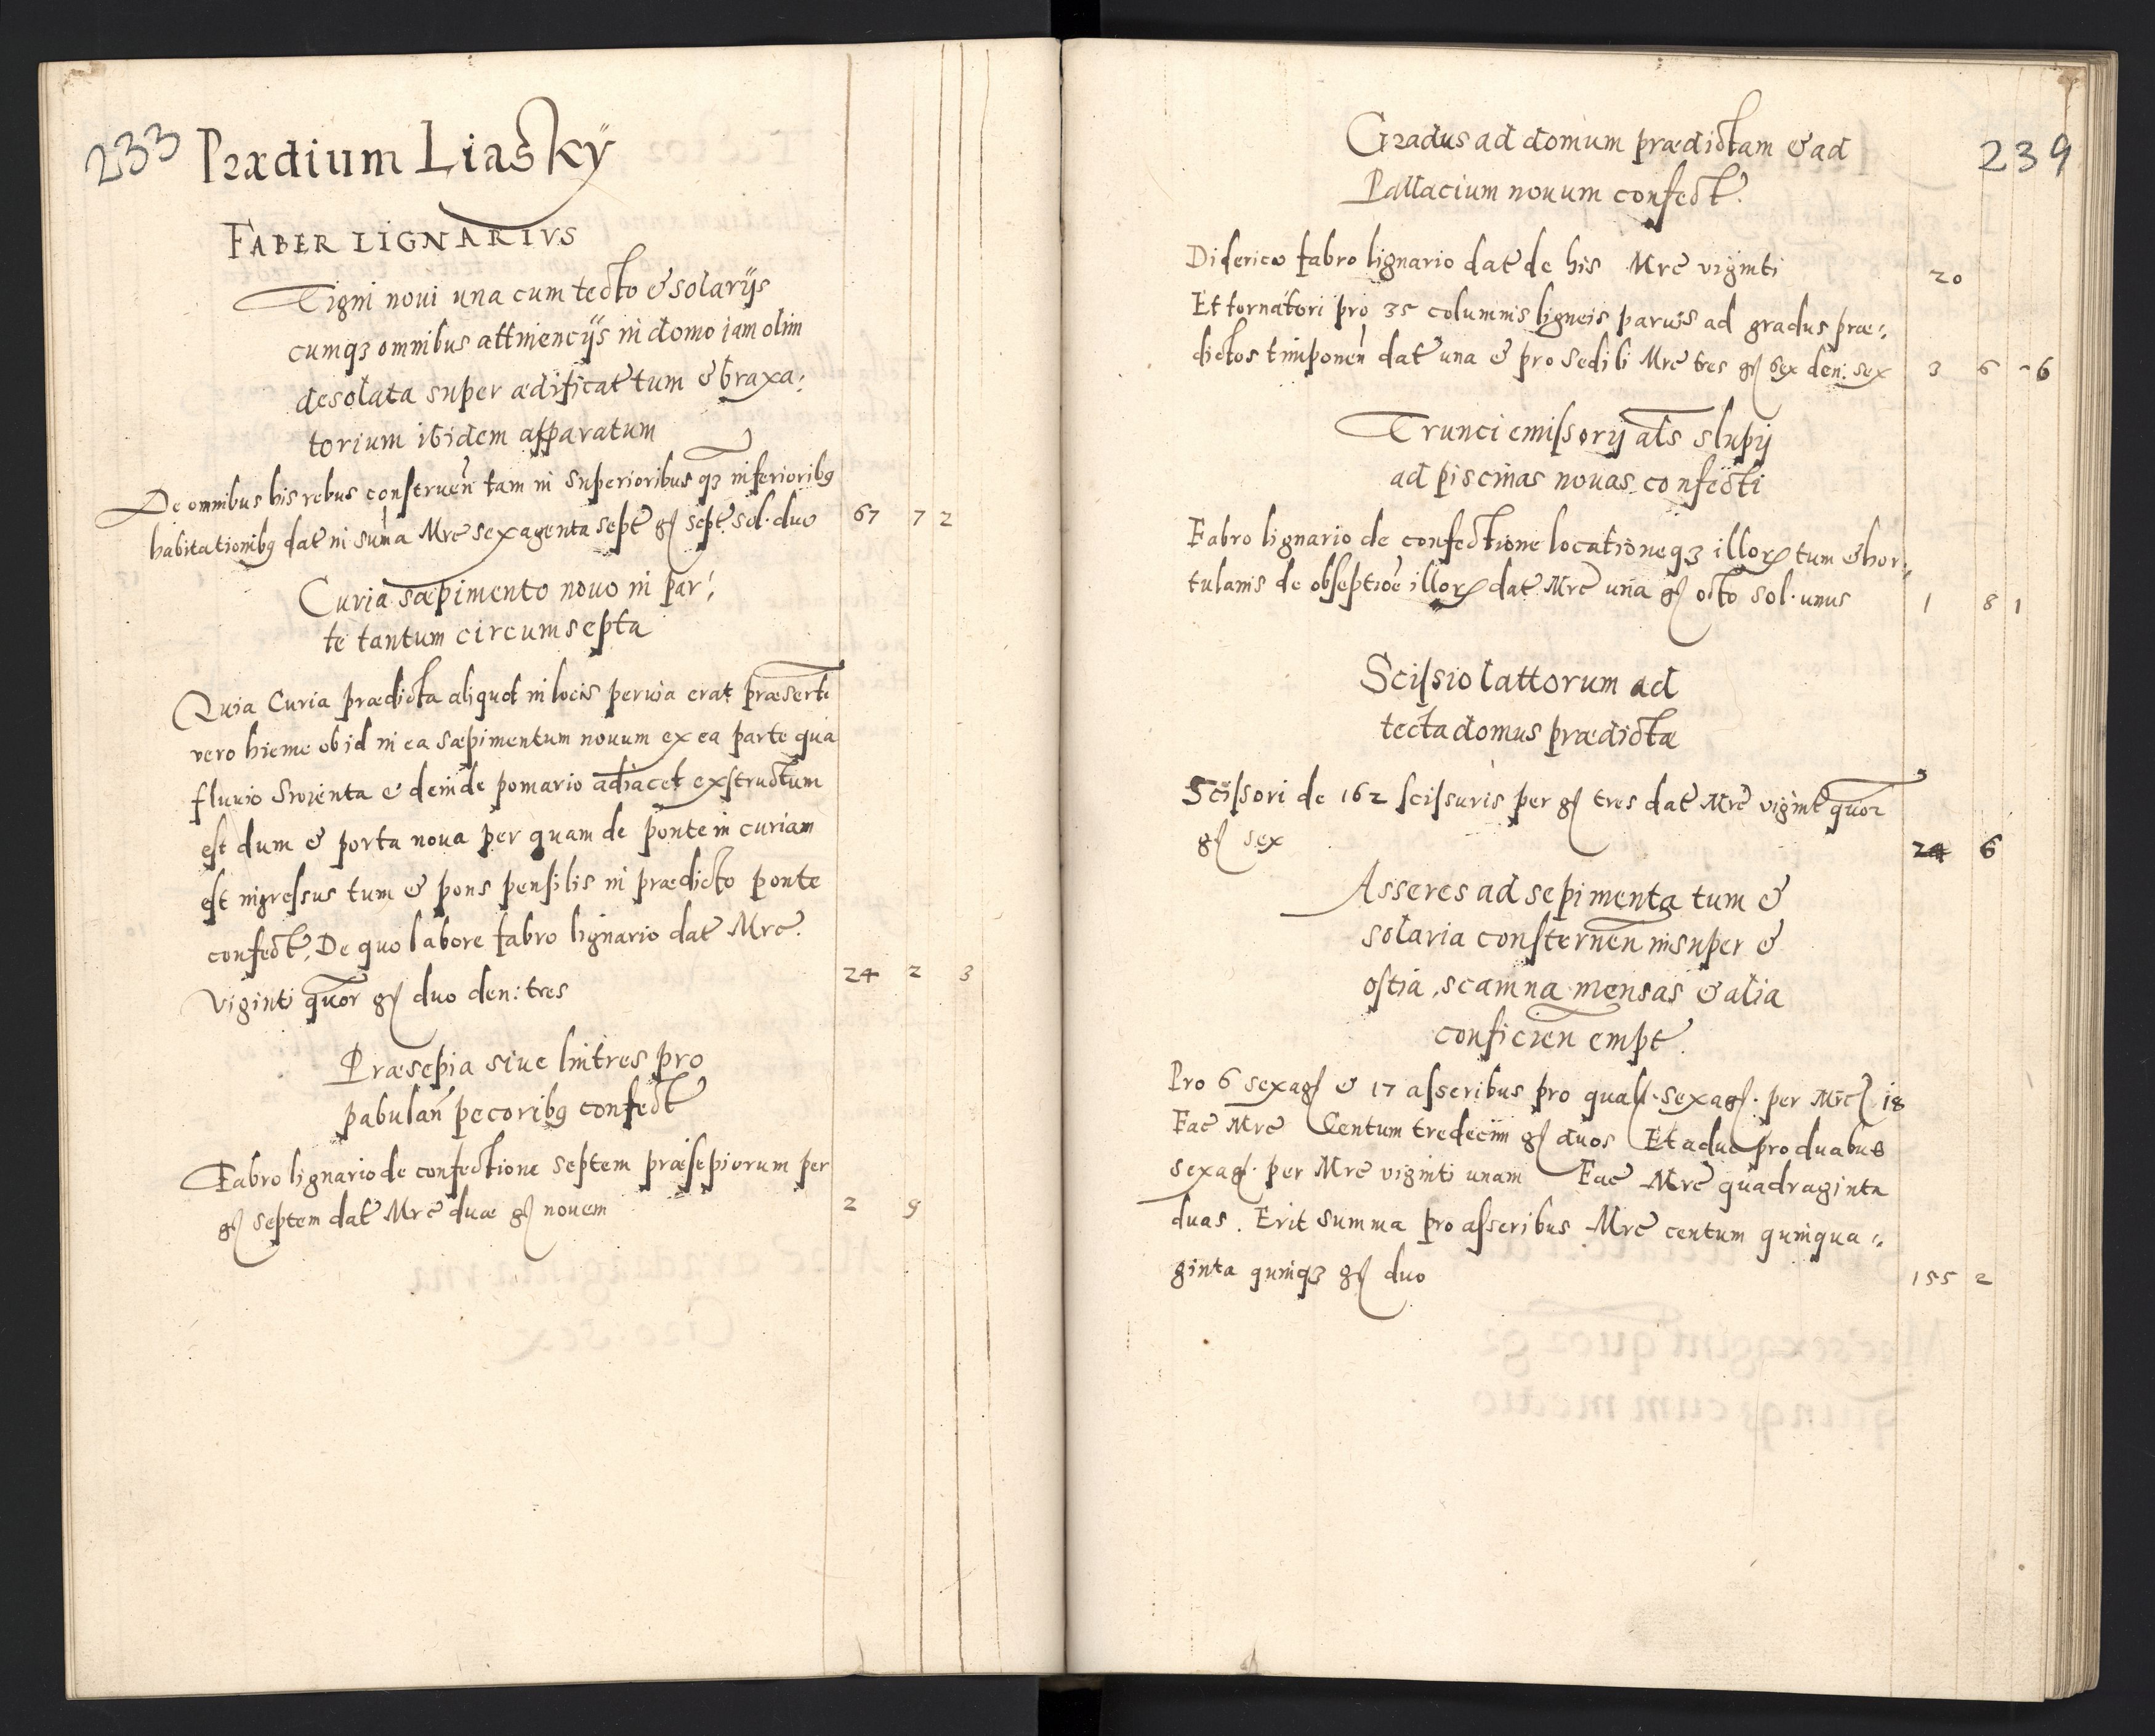 233 Prædium Liasky
FABER LIGNARIVS
Tigni noui una cum tecto & solarijs
cumqȝ omnibus attinencijs in domo iam olim
desolata super ædificat tum & braxa:
torium ibidem apparatum
De omnibus his rebus construen tam in superioribus qȝ inferioribꝫ
habitationibꝫ dat in suma Mrc sexagenta sept gſ sept sol. duo 67 7 2
Curia sæpimento nouo in par:
te tantum circumsepta
Quia Curia prædicta aliquot in locis peruia erat præserti
vero hieme ob id in ea sæpimentum nouum ex ea parte qua
fluuio & deinde pomario adiacet exstructum
est dum & porta noua per quam de ponte in curiam
est ingressus tum & pons pensilis in prædicto ponte
confect, De quo labore fabro lignario dat Mrc.
viginti quor gſ duo den: tres 24 2 3
Præsepia siue lintres pro
pabulan pecoribꝫ confect
Fabro lignario de confectione septem præsepiorum per
gſ septem dat Mrc duæ gſ nouem 2 9
Gradus ad domum prædictam & ad 239
Pallacium nouum confect.
Diderico fabro lignario dat de his Mrc viginti 20
Et tornatori pro 35 columnis ligneis paruis ad gradus præ:
dictos imponen dat una & pro sedili Mrc tres gſ sex den: sex 3 6 - 6
Trunci emissorij als slupij
ad piscinas nouas confecti
Fabro lignario de confectione locationeqȝ illoꝝ tum & hor:
tulanis de obseptioe illoꝝ dat Mrc una gſ octo sol. unus 1 8 1
Scissio lattorum ad
tecta domus prædicta
Scissori de 162 scissuris per gſ tres dat Mrc vigint quor
gſ sex 24 6
Asseres ad sepimenta tum &
solaria consternen insuper &
ostia, scamna mensas & alia
conficien empt.
Pro 6 sexagſ & 17 asseribus pro qualſ. sexagſ. per Mrcſ 18
Fac Mrc Centum tredecim gſ duos Et aduc pro duabus
sexagſ. per Mrc viginti unam Fac Mrc quadraginta
duas. Erit summa pro asseribus Mrc centum quinqua:
ginta quinqȝ gſ duo 155 2